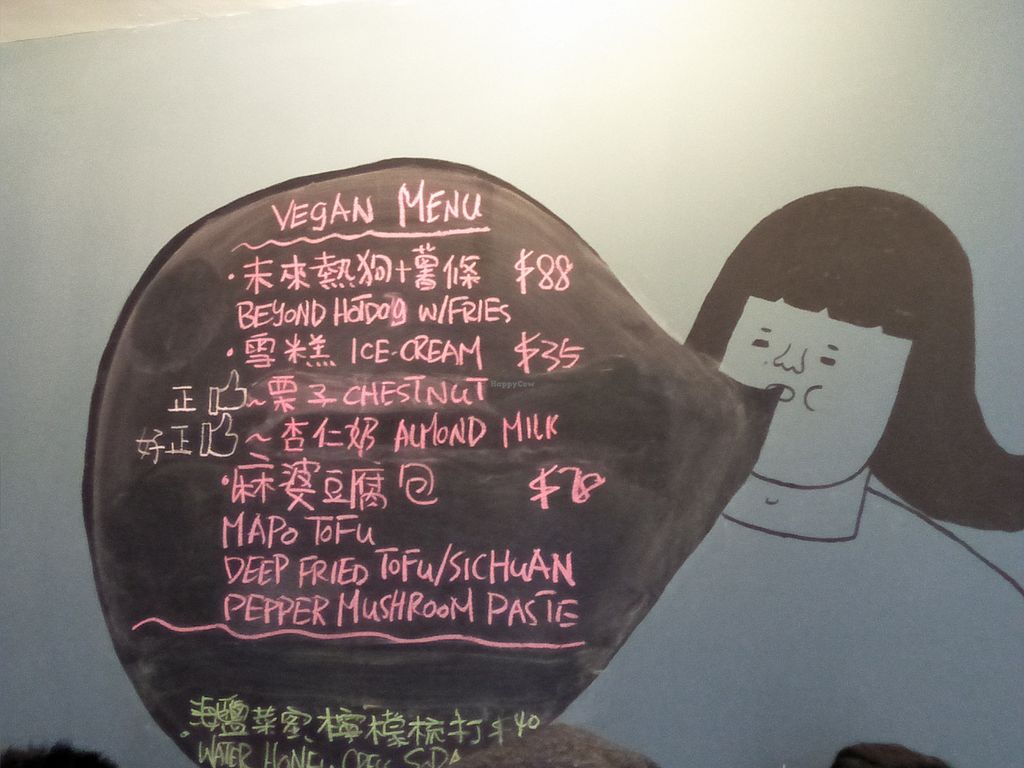 VEGAN MENU
·未來熱狗+薯條 $88
BEYOND HOTDOG W/FRIES
·雪糕 ICE-CREAM $35
正 ~栗子 CHESTNUT
好正 ~杏仁奶 ALMOND MILK
·麻婆豆腐包 $78
MAPO TOFU
DEEP FRIED TOFU/SICHUAN
PEPPER MUSHROOM PASTE
·海鹽菜蜜檸檬梳打 $40
WATER SODA
HappyCow